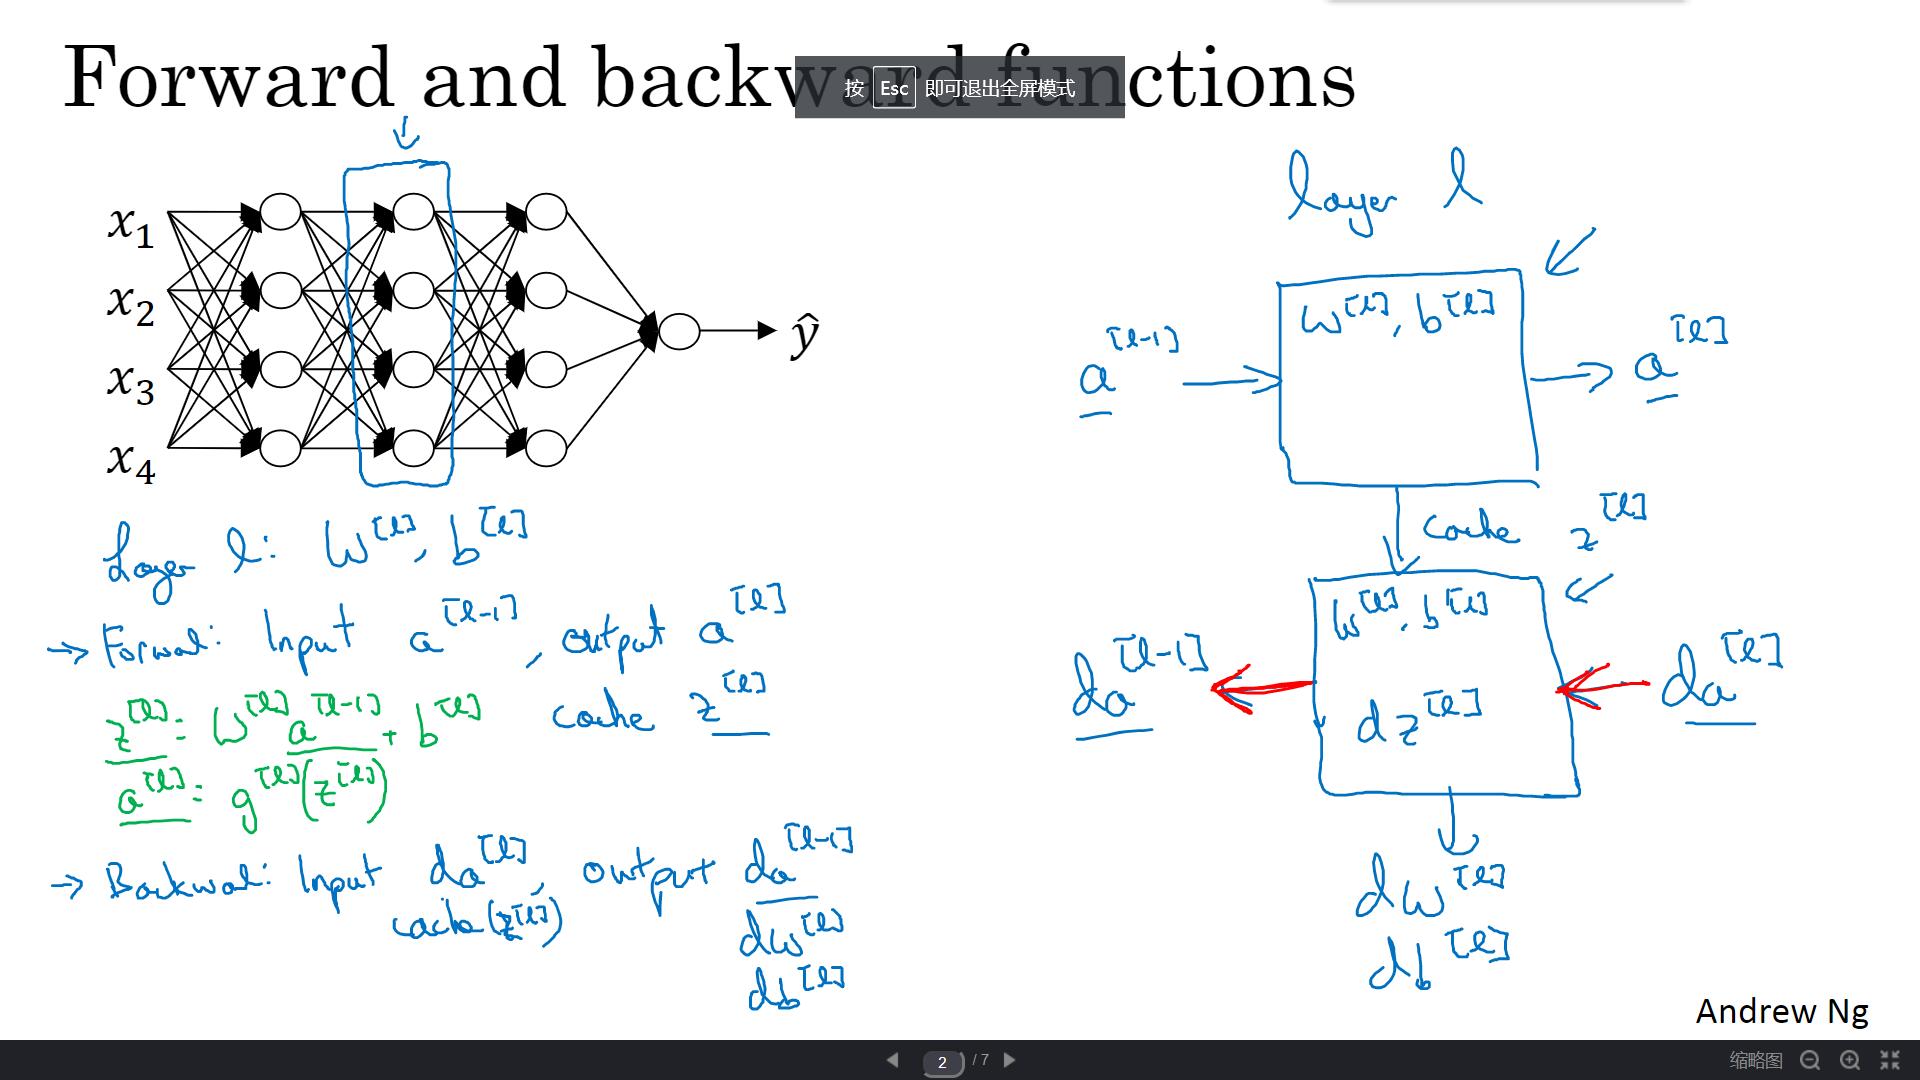 Forward and backward functions
按 Esc 即可退出全屏模式
x₁
x₂
x₃
x₄
ŷ
Layer l: W^[l], b^[l]
→ Forward: Input a^[l-1], output a^[l]
cache z^[l]
z^[l] = W^[l] a^[l-1] + b^[l]
a^[l] = g^[l](z^[l])
→ Backward: Input da^[l], output da^[l-1]
cache(z^[l])
dW^[l]
db^[l]
layer l
W^[l], b^[l]
a^[l-1] → → a^[l]
cache z^[l]
W^[l], b^[l]
da^[l-1] ← ← da^[l]
dz^[l]
dW^[l]
db^[l]
Andrew Ng
2 / 7
缩略图